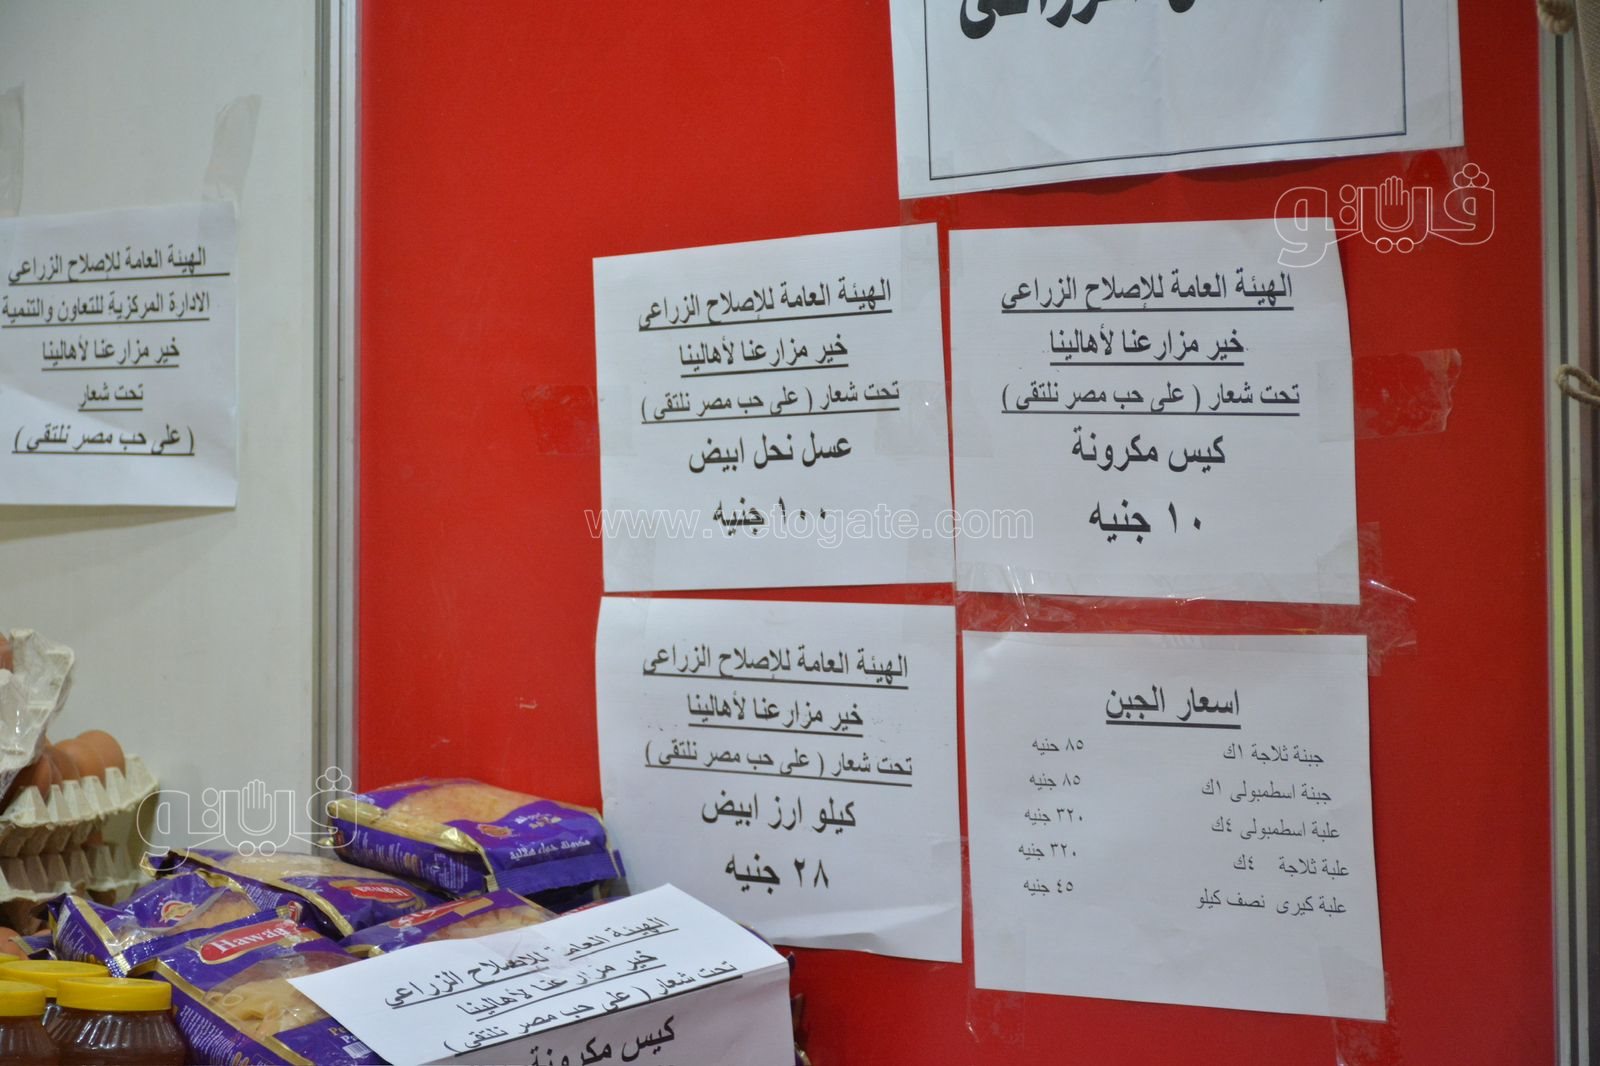 الهيئة العامة للإصلاح الزراعي
الادارة المركزية للتعاون والتنمية
خير مزارعنا لأهالينا
تحت شعار
( على حب مصر نلتقى )
الهيئة العامة للإصلاح الزراعى
خير مزارعنا لأهالينا
تحت شعار ( على حب مصر نلتقى )
كيس مكرونة
١٠ جنيه
الهيئة العامة للإصلاح الزراعى
خير مزارعنا لأهالينا
تحت شعار ( على حب مصر نلتقى )
عسل نحل ابيض
١٠٠ جنيه
الهيئة العامة للإصلاح الزراعى
خير مزارعنا لأهالينا
تحت شعار ( على حب مصر نلتقى )
كيلو ارز ابيض
٢٨ جنيه
اسعار الجبن
جبنة ثلاجة ١ك ٨٥ جنيه
جبنة اسطمبولى ١ك ٨٥ جنيه
علبة اسطمبولى ٤ك ٣٢٠ جنيه
علبة ثلاجة ٤ك ٣٢٠ جنيه
علبة كيرى نصف كيلو ٤٥ جنيه
الهيئة العامة للإصلاح الزراعي
خير مزارعنا لأهالينا
تحت شعار ( على حب مصر نلتقى )
كيس مكرونة
فيتو
www.vetogate.com
فيتو